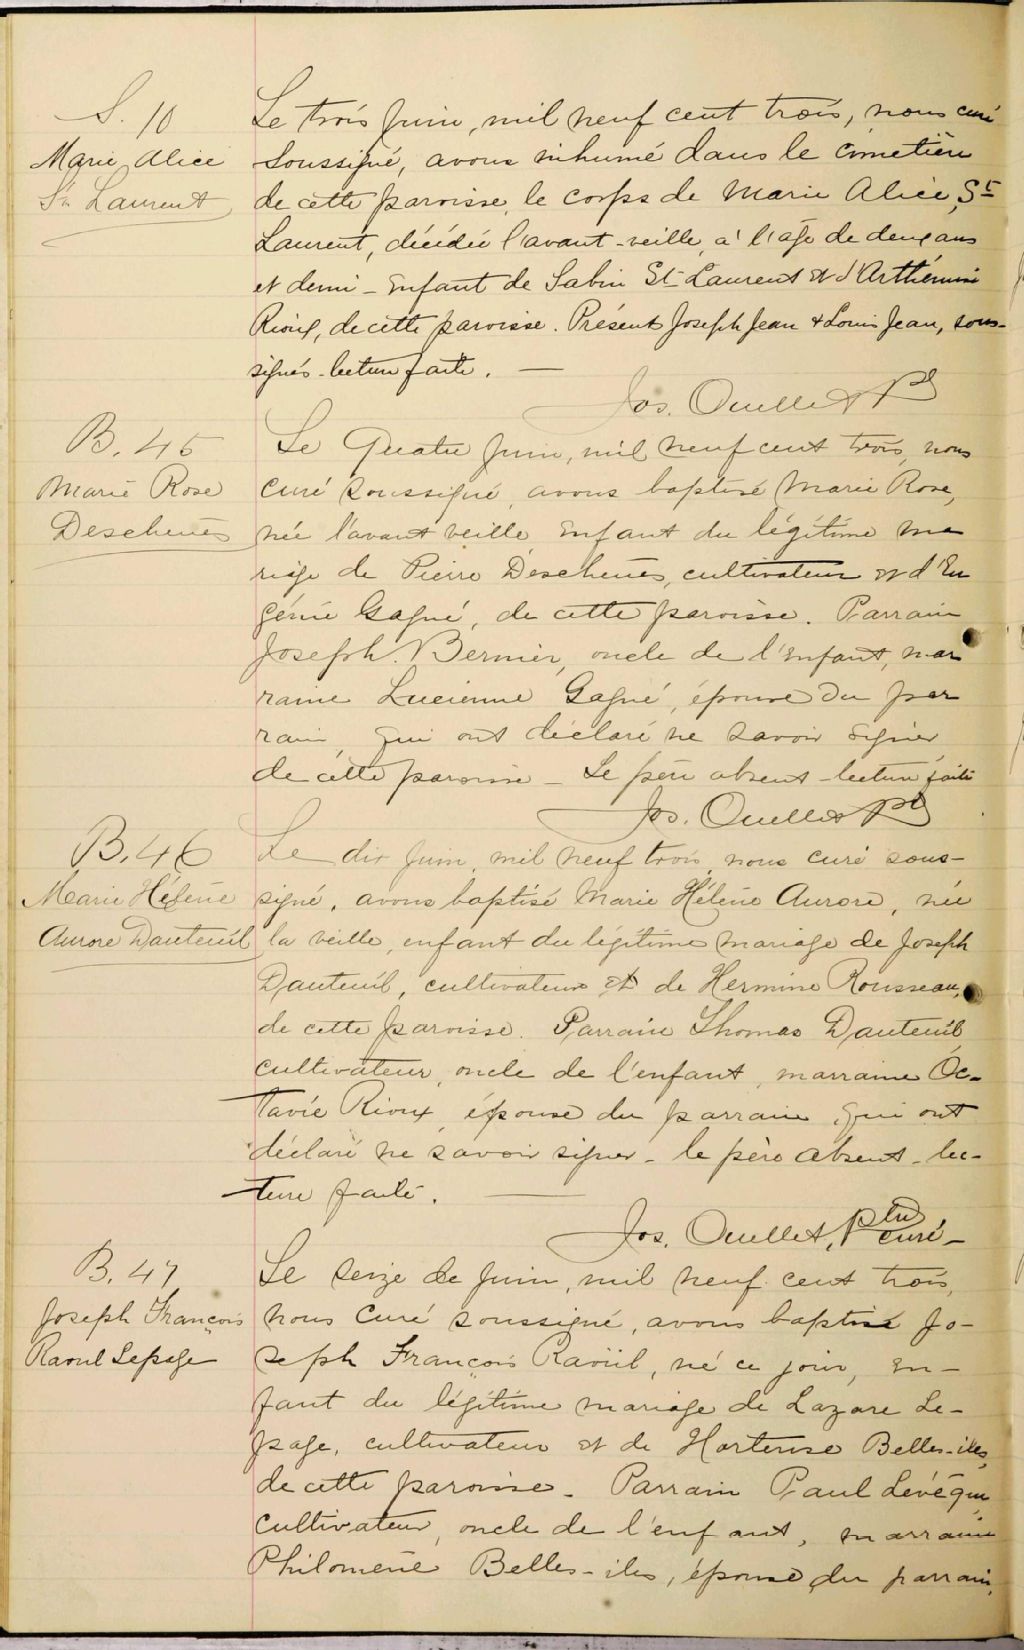 S. 10
Marie Alice
St Laurent
Le trois Juin, mil neuf cent trois, nous curé
soussigné, avons inhumé dans le cimetière
de cette paroisse, le corps de Marie Alice, St
Laurent, décédée l'avant-veille, à l'âge de deux ans
et demi - Enfant de Sabin St-Laurent et d'Arthémise
Rioux, de cette paroisse. Présents Joseph Jean & Louis Jean, sous-
signés - lecture faite. —
Jos. Ouellet Ptre
B. 45
Marie Rose
Deschenes
Le Quatre Juin, mil neuf cent trois, nous
curé soussigné, avons baptisé Marie Rose,
née l'avant veille Enfant du légitime ma
riage de Pierre Deschenes, cultivateur et d'Eu
génie Gagné, de cette paroisse. Parrain
Joseph Bernier, oncle de l'Enfant, mar
raine Lucienne Gagné, épouse du par
rain, qui ont déclaré ne savoir signer
de cette paroisse - Le père absent - lecture faite
Jos. Ouellet Ptre
B. 46
Marie Hélène
Aurore Dauteuil
Le dix Juin, mil neuf trois, nous curé sous-
signé, avons baptisé Marie Hélène Aurore, née
la veille, enfant du légitime mariage de Joseph
Dauteuil, cultivateur et de Hermine Rousseau,
de cette paroisse. Parrain Thomas Dauteuil
cultivateur, oncle de l'enfant, marraine Oc-
tavie Rioux, épouse du parrain, qui ont
déclaré ne savoir signer - le père absent - lec-
ture faite. —
Jos. Ouellet, Ptre curé -
B. 47
Joseph François
Raoul Lepage
Le seize de Juin, mil neuf cent trois,
nous curé soussigné, avons baptisé Jo-
seph François Raoül, né ce jour, en-
fant du légitime mariage de Lazare Le-
page, cultivateur et de Hortense Belles-iles,
de cette paroisse - Parrain Paul Lévêque
cultivateur, oncle de l'enfant, marraine
Philomène Belles-iles, épouse du parrain,